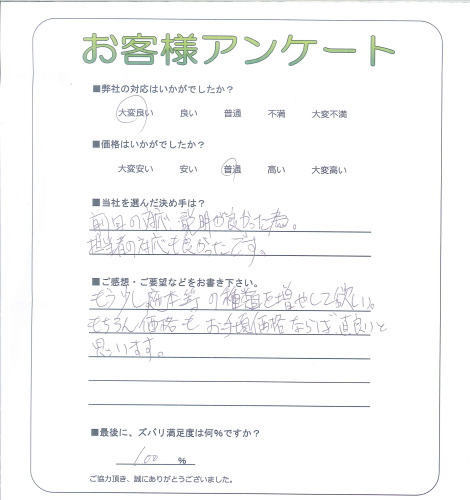 お客様アンケート
■弊社の対応はいかがでしたか?
大変良い 良い 普通 不満 大変不満
■価格はいかがでしたか?
大変安い 安い 普通 高い 大変高い
■当社を選んだ決め手は?
前日の対応、説明が良かった為。
担当者の対応も良かったです。
■ご感想・ご要望などをお書き下さい。
もう少し 等の種類を増やして欲しい。
もちろん価格もお手頃価格ならば直良いと
思います。
■最後に、ズバリ満足度は何%ですか?
100 %
ご協力頂き、誠にありがとうございました。